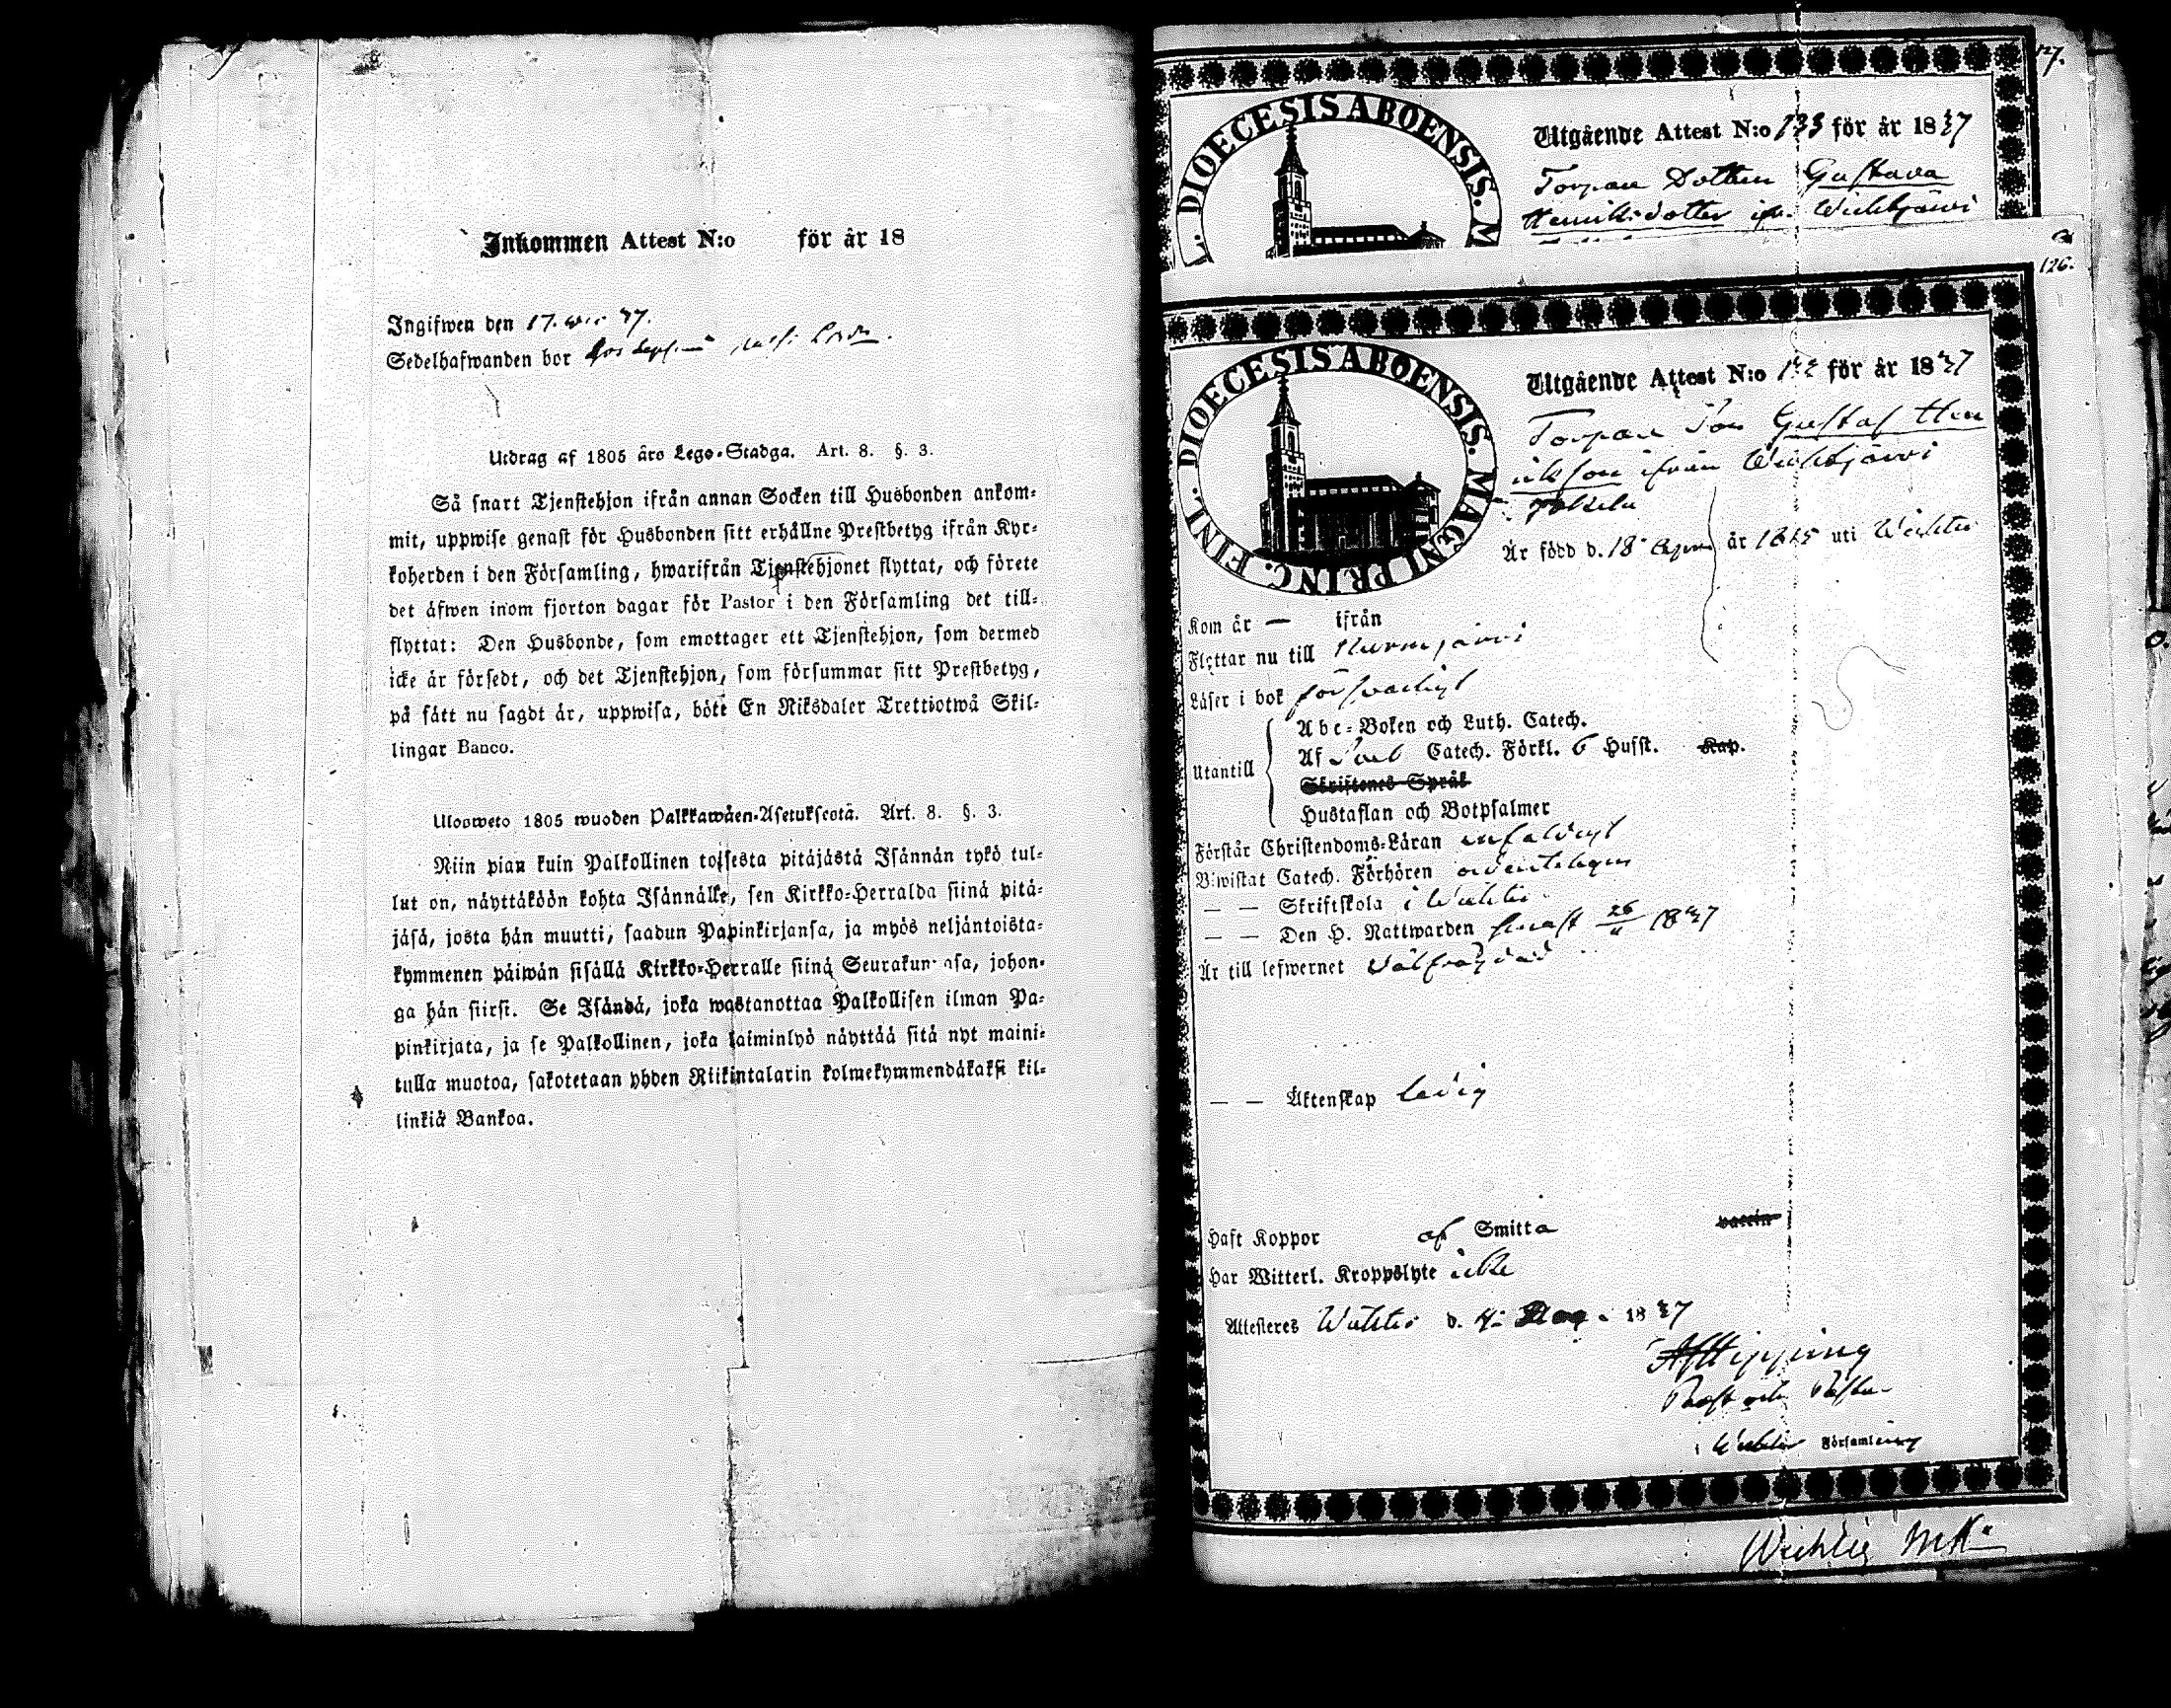 Inkommen Attest N:o för år 18
Ingifwen den 17. 47.
Sedelhafwanden bor
Utdrag af 1805 års Lego-Stadga. Art. 8. §. 3.
Så snart Tjenstehjon ifrån annan Socken till Husbonden ankom-
mit, uppwise genast för Husbonden sitt erhållne Prestbetyg ifrån Kyr-
koherden i den Församling, hwarifrån Tjenstehjonet flyttat, och förete
det åfwen inom fjorton dagar för Pastor i den Församling det till-
flyttat: Den Husbonde, som emottager ett Tjenstehjon, som dermed
icke är försedt, och det Tjenstehjon, som försummar sitt Prestbetyg,
på sått nu sagdt är, uppwisa, böte En Riksdaler Trettiotwå Skil-
lingar Banco.
Ulosweto 1805 wuoden Palkkawäen-Asetuksestä. Art. 8. §. 3.
Niin pian kuin Palkollinen toisesta pitäjästä Isännän tykö tul-
lut on, näyttäköön kohta Isännälle, sen Kirkko-Herralda siinä pitä-
jäsä, josta hän muutti, saadun Papinkirjansa, ja myös neljäntoista-
kymmenen päiwän sisällä Kirkko-Herralle siinä Seurakun asa, johon-
ga hän siirsi. Se Isändä, joka wastanottaa Palkollisen ilman Pa-
pinkirjata, ja se Palkollinen, joka laiminlyö näyttää sitä nyt maini-
tulla muotoa, sakotetaan yhden Riikintalarin kolmekymmendäkaksi kil-
linkiä Bankoa.
127.
DIOECESIS ABOENSIS. M
Utgående Attest N:o 133 för år 1847
Torpare Dottren Gustava
Henriksdotter ifr. Wichtjärvi
126.
DIOECESIS ABOENSIS. MAGNI PRINC. FINL.
Utgående Attest N:o för år 1847
Torpare Son Gustaf Hen
rikson ifrån Wichtjärvi
Är född d. 18 år uti Wichtis
Kom år — ifrån
Flyttar nu till Nurmijärvi
Läser i bok försvarligt
Utantill
Abc-Boken och Luth. Catech.
Af Catech. Förkl. 6 Husst. Kap.
Skriftenes Språk
Hustaflan och Botpsalmer
Förstår Christendoms-Läran enfaldigt
Biwistat Catech. Förhören ordenteligen
— — Skriftskola i Wichtis
— — Den H. Nattwarden senast 26 1847
Är till lefwernet wälfrägdad
— — Äktenskap ledig
Haft Koppor af Smitta vaccin
Har Witterl. Kroppslyte icke
Attesteres Wichtis d. 1847
Hipping
Prost och Pastor
i Wichtis Församling
Wichtis